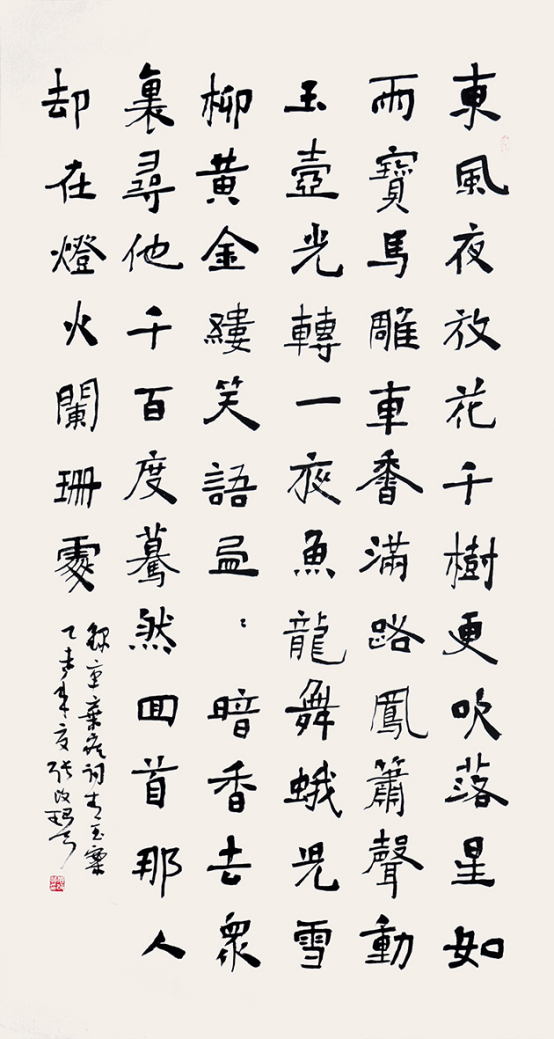 東風夜放花千樹更吹落星如
雨寶馬雕車香滿路鳳簫聲動
玉壺光轉一夜魚龍舞蛾兒雪
柳黃金縷笑語盈:暗香去眾
裏尋他千百度驀然回首那人
却在燈火闌珊處
錄辛棄疾詞青玉案
乙未年夏張改琴